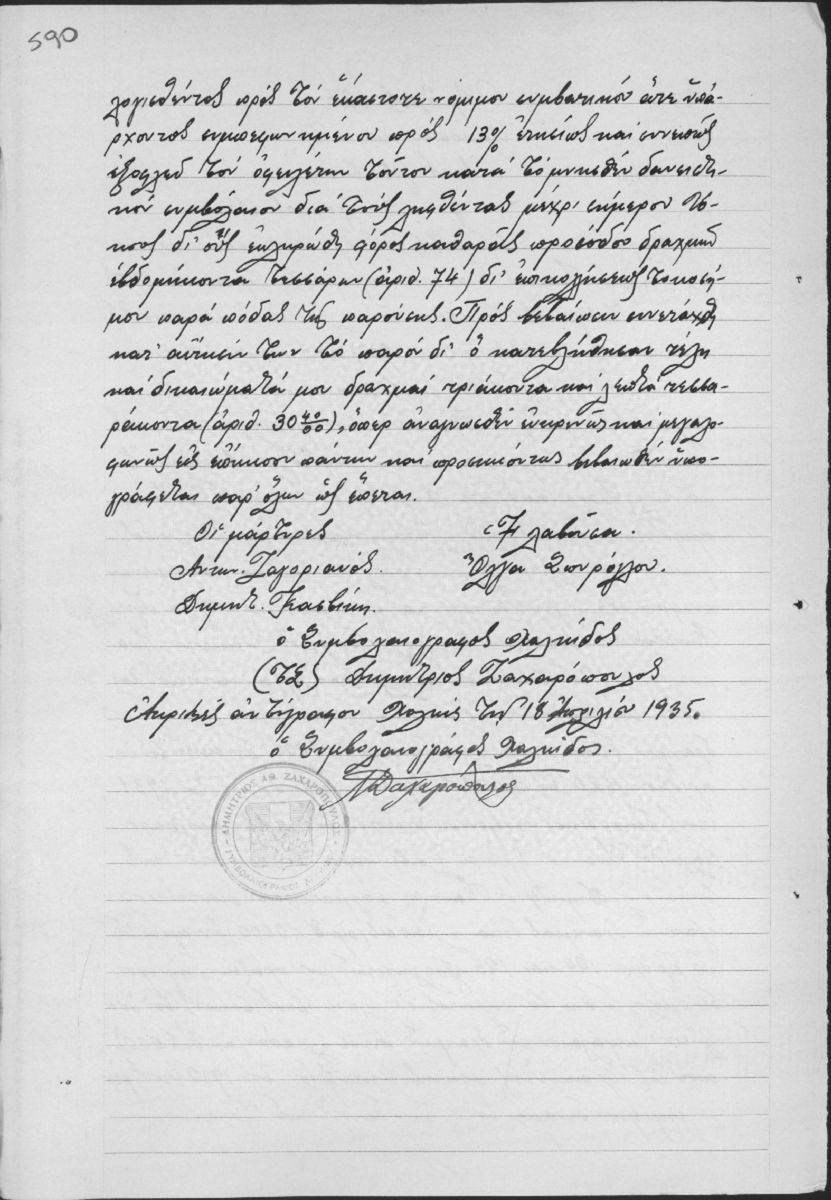 590
λογισθέντος πρὸς τὸν ἑκάστοτε νόμιμον συμβατικόν ἅτε ὑπάρ-
ρχοντος συμπεφωνημένου πρὸς 13% ἐτησίως καὶ συνεπῶς
ἐξοφλεῖ τὸν ὀφειλέτην τοῦτον κατὰ τὸ μνησθὲν δανειστι-
κὸν συμβόλαιον διὰ τοὺς ληφθέντας μέχρι σήμερον τό-
κους δι' οὓς ἐπληρώθη φόρος καθαρᾶς προσόδου δραχμῶν
ἑβδομήκοντα τεσσάρων (ἀριθ. 74) δι' ἐπικολλήσεως τοκοσή-
μου παρὰ πόδας τῆς παρούσης. Πρὸς βεβαίωσιν συνετάχθη
κατ' αἴτησίν των τὸ παρὸν δι' ὃ κατεβλήθησαν τέλη
καὶ δικαιώματά μου δραχμαὶ τριάκοντα καὶ λεπτὰ τεσσα-
ράκοντα (ἀριθ. 30 40/00), ὅπερ ἀναγνωσθὲν εὐκρινῶς καὶ μεγαλο-
φώνως εἰς ἐπήκοον πάντων καὶ προσηκόντως βεβαιωθὲν ὑπο-
γράφεται παρ' ὅλων ὡς ἕπεται.
Οἱ μάρτυρες Ἡ λαβοῦσα.
Αντων. Ζαγοριανός. Ὄλγα
Δημητ.
ὁ Συμβολαιογράφος Χαλκίδος
(ΤΣ) Δημήτριος Ζαχαρόπουλος
Ἀκριβὲς ἀντίγραφον Χαλκὶς τῇ 18 Ἀπριλίου 1935.
ὁ Συμβολαιογράφος Χαλκίδος.
ΔΖαχαρόπουλος
ΔΗΜΗΤΡΙΟΣ ΑΘ. ΖΑΧΑΡΟΠΟΥΛΟΣ
ΣΥΜΒΟΛΑΙΟΓΡΑΦΟΣ